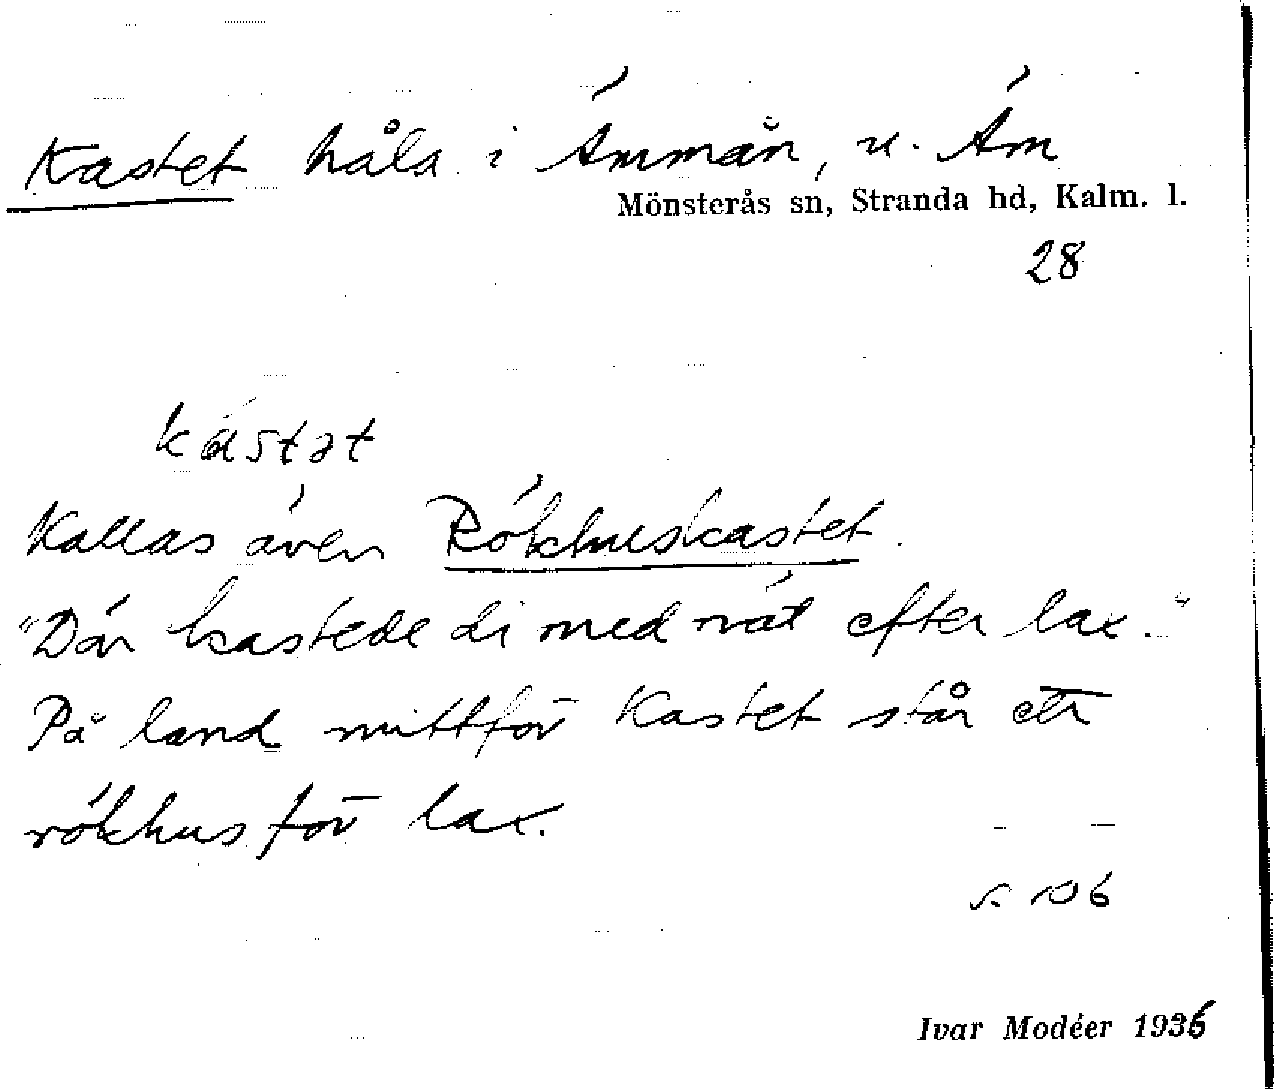 Kastet håla i Ämmån, u. Äm
Mönsterås sn, Stranda hd, Kalm. l.
28
kástət
Kallas även Rökhuskastet.
"Där kastede di med nät efter lax."
På land mittför Kastet står ett
rökhus för lax.
s. 106
Ivar Modéer 1936